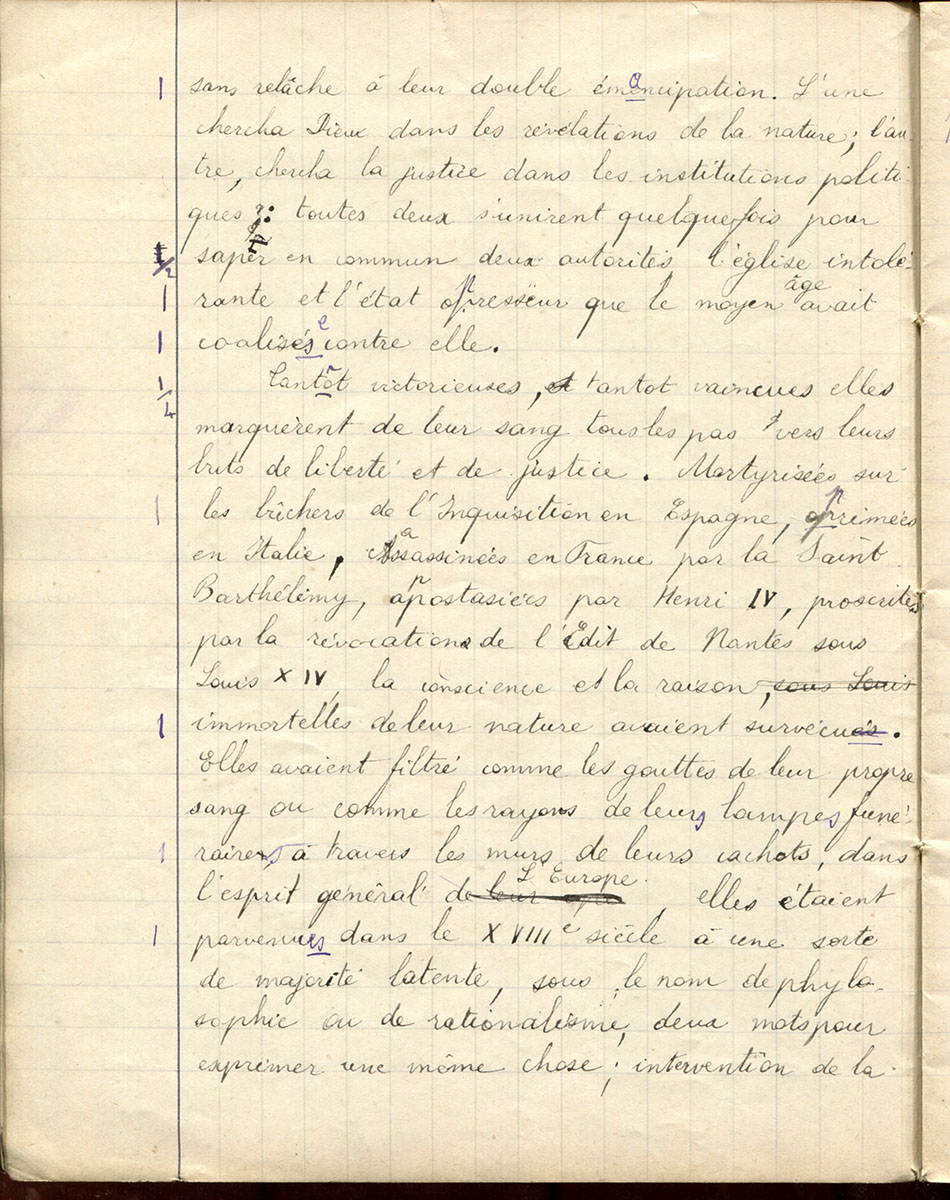 1 sans relâche à leur double émancipation. L'une
chercha Dieu dans les révélations de la nature; l'au-
tre, chercha la justice dans les institutions politi-
ques: toutes deux s'unirent quelquefois pour
1/2 saper en commun deux autorités l'église intolé-
1 rante et l'état oppresseur que le moyen âge avait
1 coalisées contre elle.
1/4 Tantôt victorieuses, tantot vaincues elles
marquèrent de leur sang tous les pas vers leurs
buts de liberté et de justice. Martyrisées sur
1 les bûchers de l'Inquisition en Espagne, opprimées
en Italie, assassinées en France par la Saint
Barthélémy, apostasiées par Henri IV, proscrites
par la révocation de l'Édit de Nantes sous
Louis XIV, la conscience et la raison, sous Louis
1 immortelles de leur nature avaient survécues.
Elles avaient filtré comme les gouttes de leur propre
sang ou comme les rayons de leurs lampes funé-
1 raires, à travers les murs de leurs cachots, dans
l'esprit général de L'Europe. elles étaient
1 parvenues dans le XVIIIe siècle à une sorte
de majorité latente, sous le nom de phylo-
sophie ou de rationalisme, deux mots pour
exprimer une même chose; intervention de la